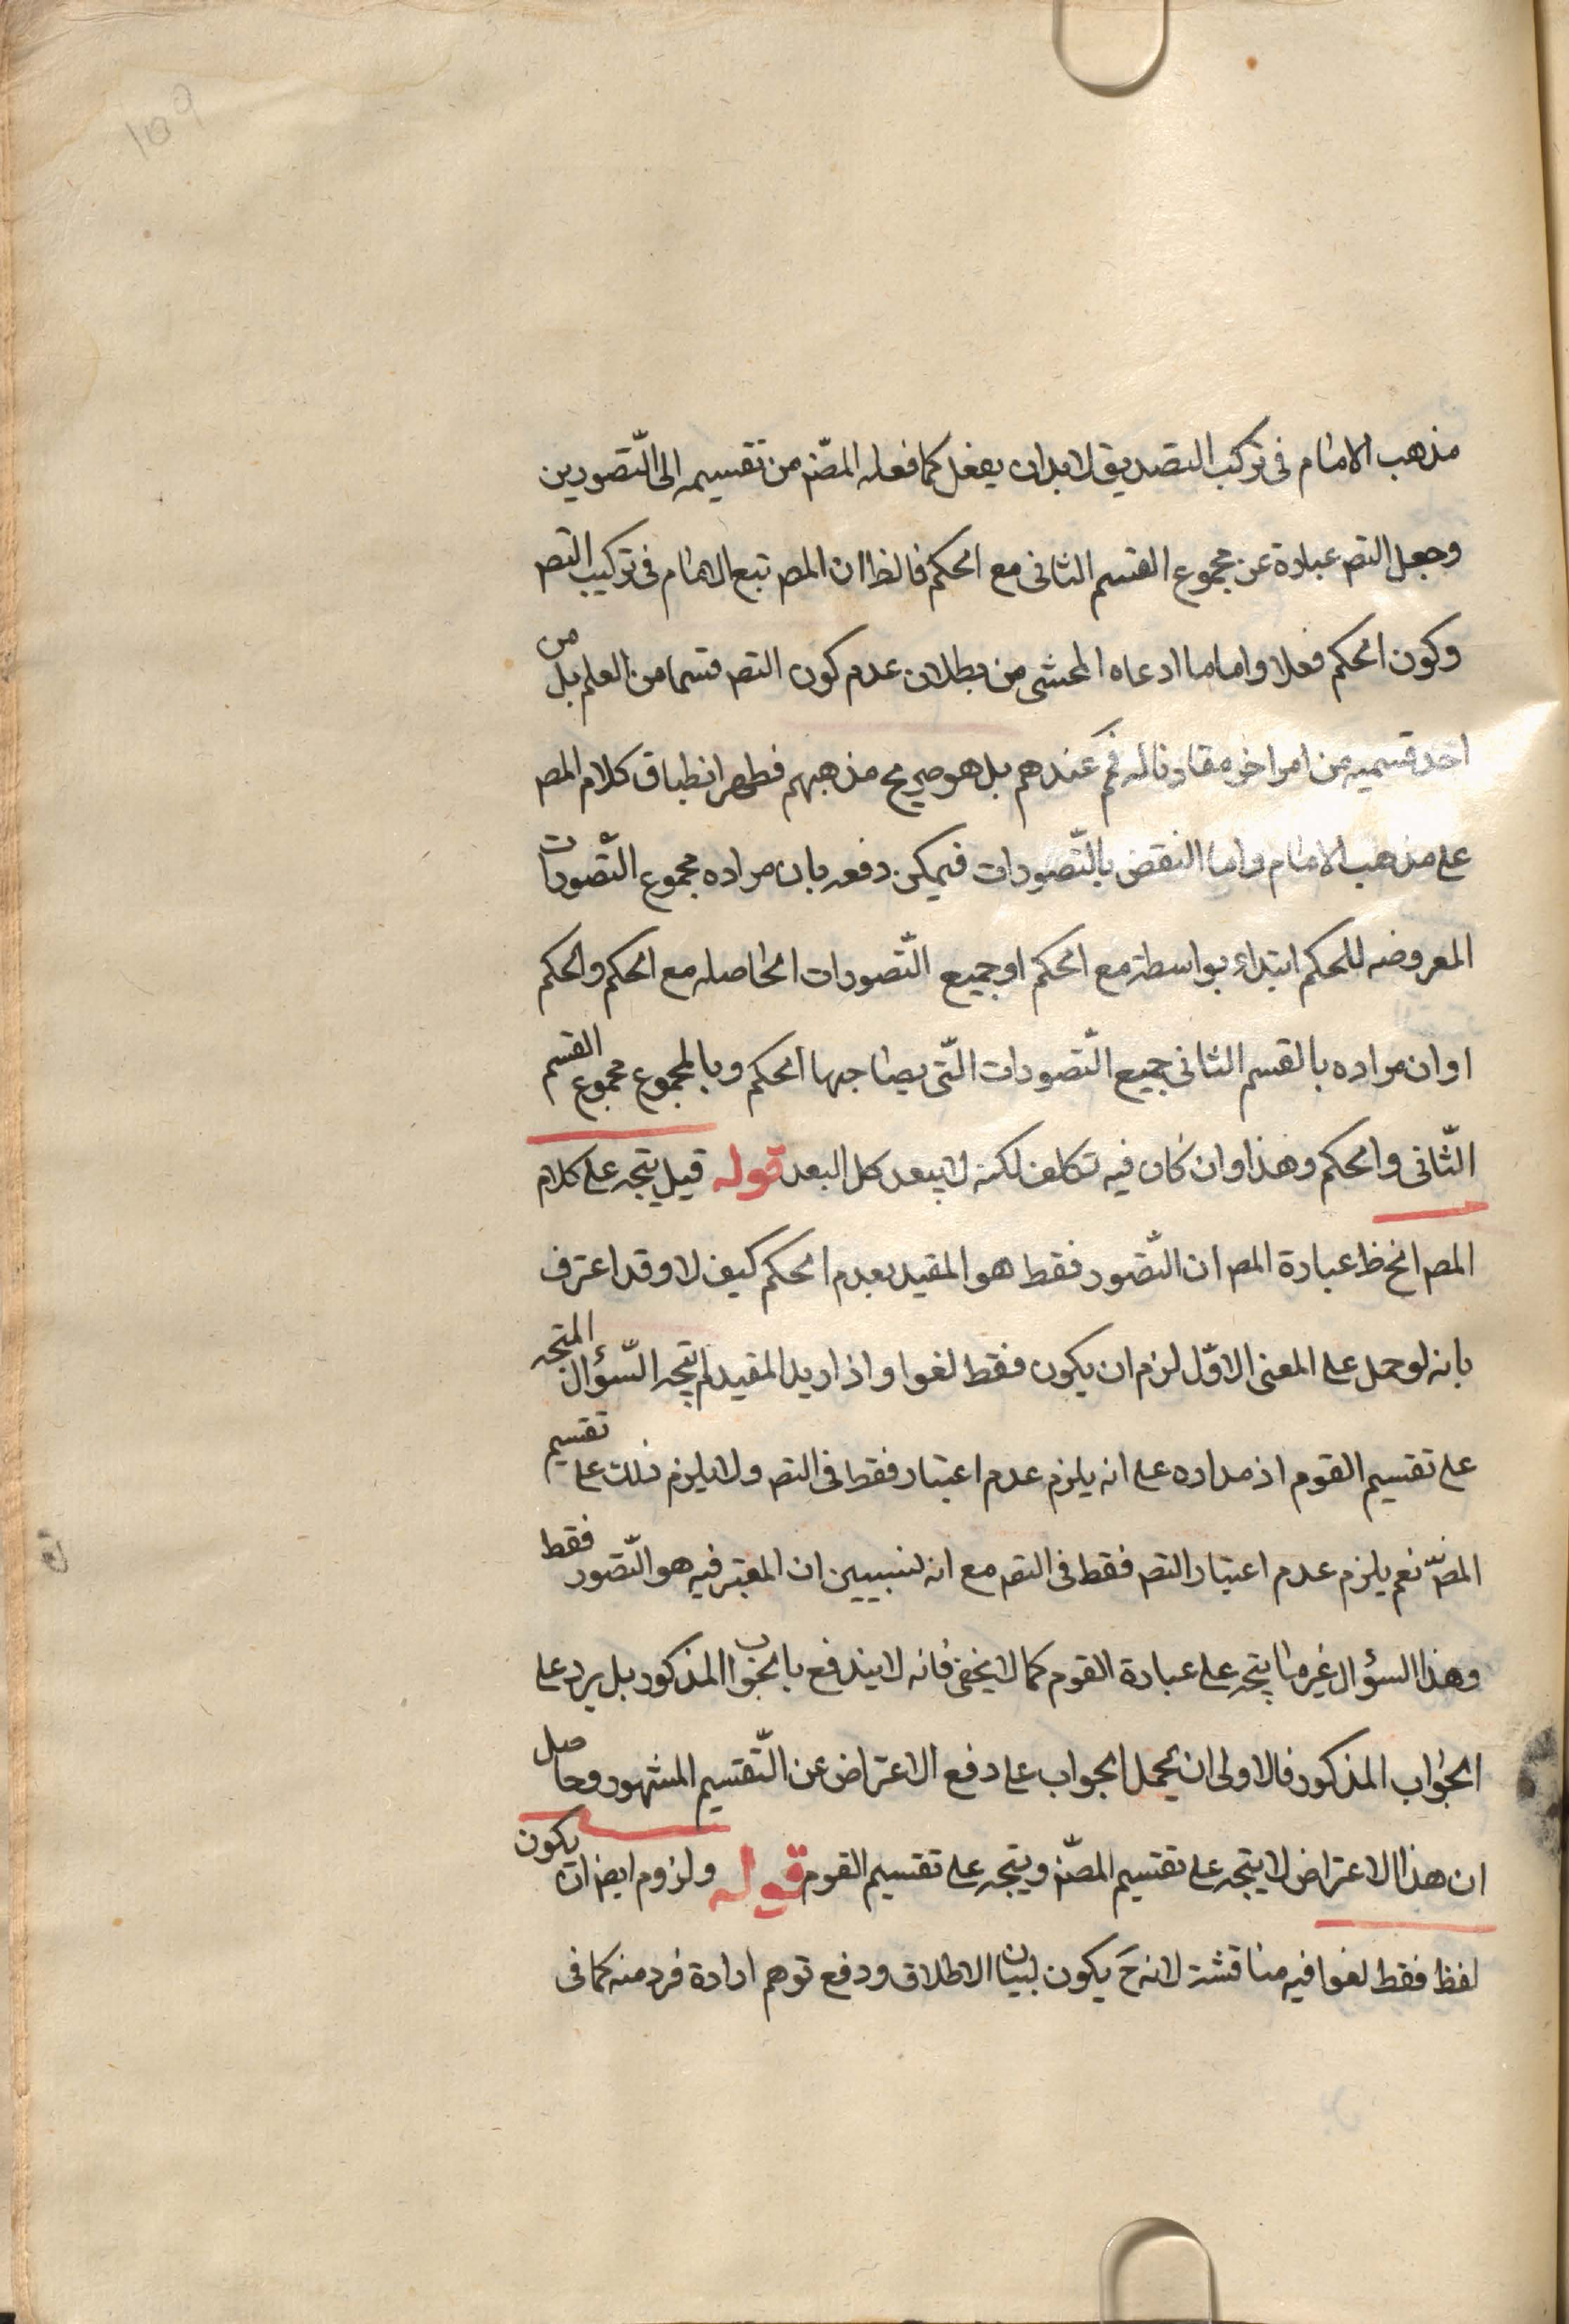 مذهب الامام فى تركب التصديق لابد ان يفعل كما فعله المصنّ من تقسيمه الى التّصورين
وجعل التص عبارة عن مجموع القسم الثانى مع الحكم فالظا ان المص تبع الامام فى تركيب التص
وكون الحكم فعلا واما ما ادعاه المحشى من بطلان عدم كون التص قسما من العلم بل من
احد قسميه من امر اخر مقارنا له فم عندهم بل هو صريح مذهبهم فظهر انطباق كلام المص
على مذهب الامام واما النقض بالتّصورات فيمكن دفعه بان مراده مجموع التّصورات
المعروضه للحكم ابتداء بواسطة مع الحكم او جميع التّصورات الحاصله مع الحكم والحكم
او ان مراده بالقسم الثانى جميع التّصورات الّتى يصاحبها الحكم وبالمجموع مجموع القسم
الثّانى والحكم وهذا وان كان فيه تكلف لكنه لا يبعد كل البعد قوله قيل يتجه على كلام
المص الخ ظ عبارة المص ان التّصور فقط هو المقيد بعدم الحكم كيف لا وقد اعترف
بانه لو حمل على المعنى الاوّل لزم ان يكون فقط لغوا واذا اريد المقيد لم يتجه السّؤال المتجه
على تقسيم القوم اذ مداره على انه يلزم عدم اعتبار فقط فى التص ولا يلزم ذلك على تقسيم
المصنّ نعم يلزم عدم اعتبار التص فقط فى التص مع انه لنبيين ان المعتبر فيه هو التّصور فقط
وهذا السؤال غير ما يتجه على عبارة القوم كما لا يخفى فانه لا يندفع بالجواب المذكور بل يرد على
الجواب المذكور فالاولى ان يحمل الجواب على دفع الاعتراض عن التّقسيم المشهور وحاصل
ان هذا الاعتراض لا يتجه على تقسيم المصنّ ويتجه على تقسيم القوم قوله ولزوم ايض ان يكون
لفظ فقط لغوا فيه مناقشة لانه ح يكون لبيان الاطلاق ودفع توهم ارادة فرد منه كما فى